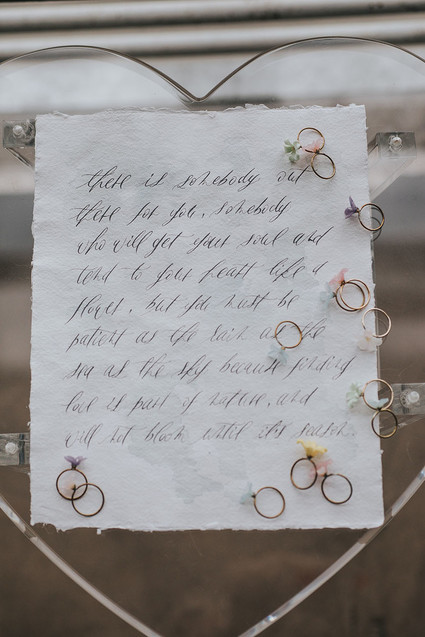 there is somebody out
there for you, somebody
who will get your soul and
tend to your heart like a
flower, but you must be
patient as the rain and the
sea as the sky because finding
love is part of nature, and
will not bloom until it's season.